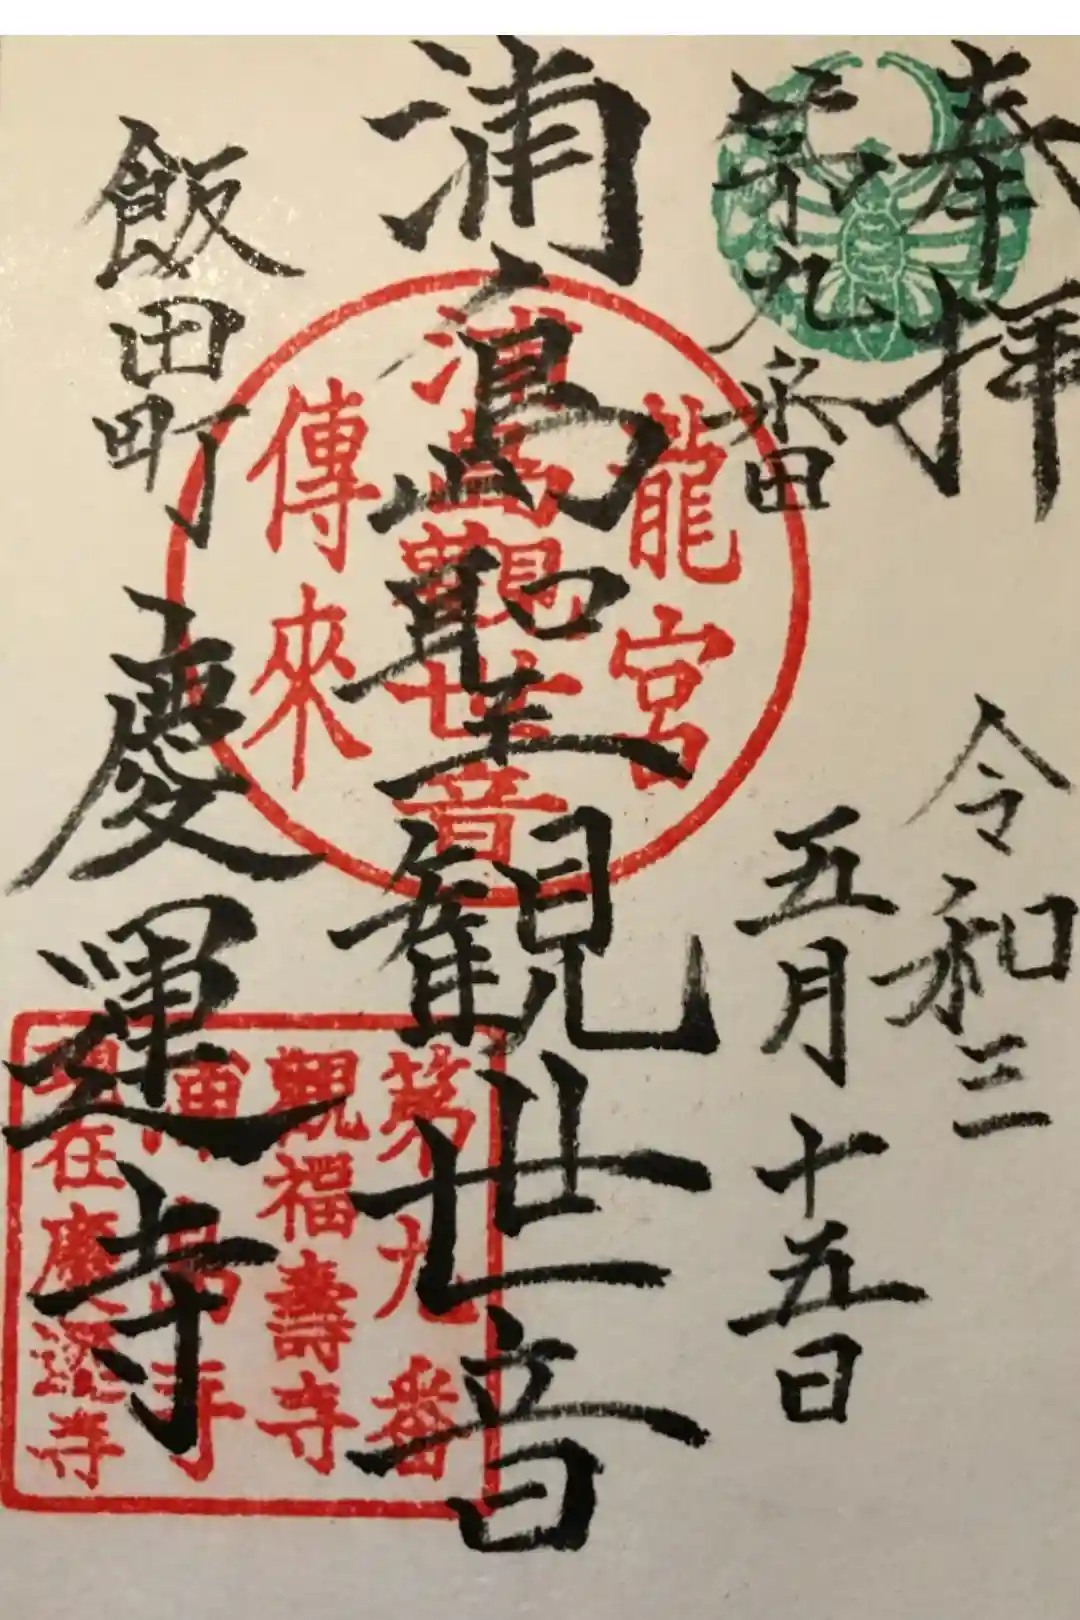 奉拝
第九番
令和三
五月十五日
浦島聖観世音
飯田町
慶運寺
龍宮
浦島観世音
傳來
第九番
観福壽寺
浦島寺
現在慶運寺